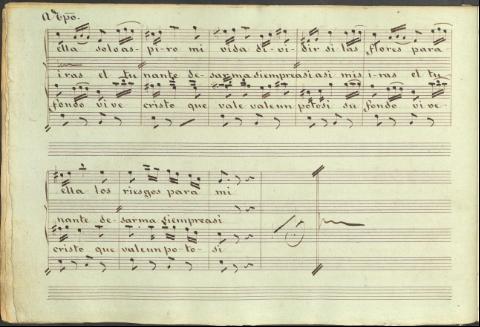 a tpo.
ella solo as- pi-ro mi vida di-vi- dir si las flores para
iras el tu nante de- sarma siempre asi asi mis i-ras el tu
fondo vive cristo que vale vale un potosi su fondo vi ve-
ella los riesgos para mi
nante de- sarma siempre asi
cristo que vale un po-to- si